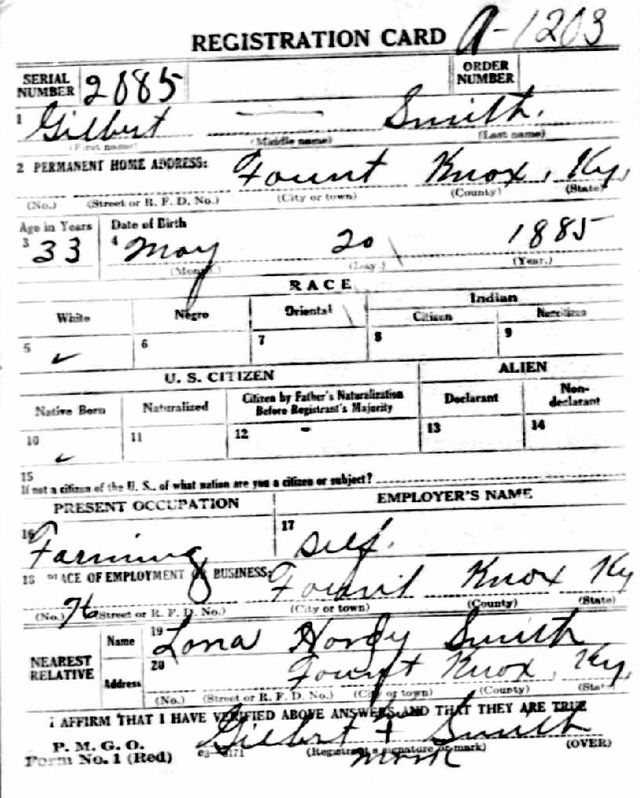 REGISTRATION CARD A-1203
SERIAL NUMBER 2085 ORDER NUMBER
1 Gilbert — Smith.
(First name) (Middle name) (Last name)
2 PERMANENT HOME ADDRESS: Fount Knox, Ky.
(No.) (Street or R. F. D. No.) (City or town) (County) (State)
Age in Years Date of Birth
3 33 4 May 20 1885
(Month.) (Day.) (Year.)
RACE
White Negro Oriental Indian
Citizen Noncitizen
5 ✓ 6 7 8 9
U. S. CITIZEN ALIEN
Native Born Naturalized Citizen by Father's Naturalization Before Registrant's Majority Declarant Non-declarant
10 ✓ 11 12 - 13 14
15
If not a citizen of the U. S., of what nation are you a citizen or subject?
PRESENT OCCUPATION EMPLOYER'S NAME
16 Farming 17 Self.
18 PLACE OF EMPLOYMENT OR BUSINESS: Fount Knox Ky
(No.) (Street or R. F. D. No.) (City or town) (County) (State)
NEAREST RELATIVE Name 19 Lona Smith
Address 20 Fount Knox, Ky.
(No.) (Street or R. F. D. No.) (City or town) (County) (State)
I AFFIRM THAT I HAVE VERIFIED ABOVE ANSWERS AND THAT THEY ARE TRUE
P. M. G. O. Gilbert Smith
Form No. 1 (Red) (Registrant's signature or mark) (OVER)
mark